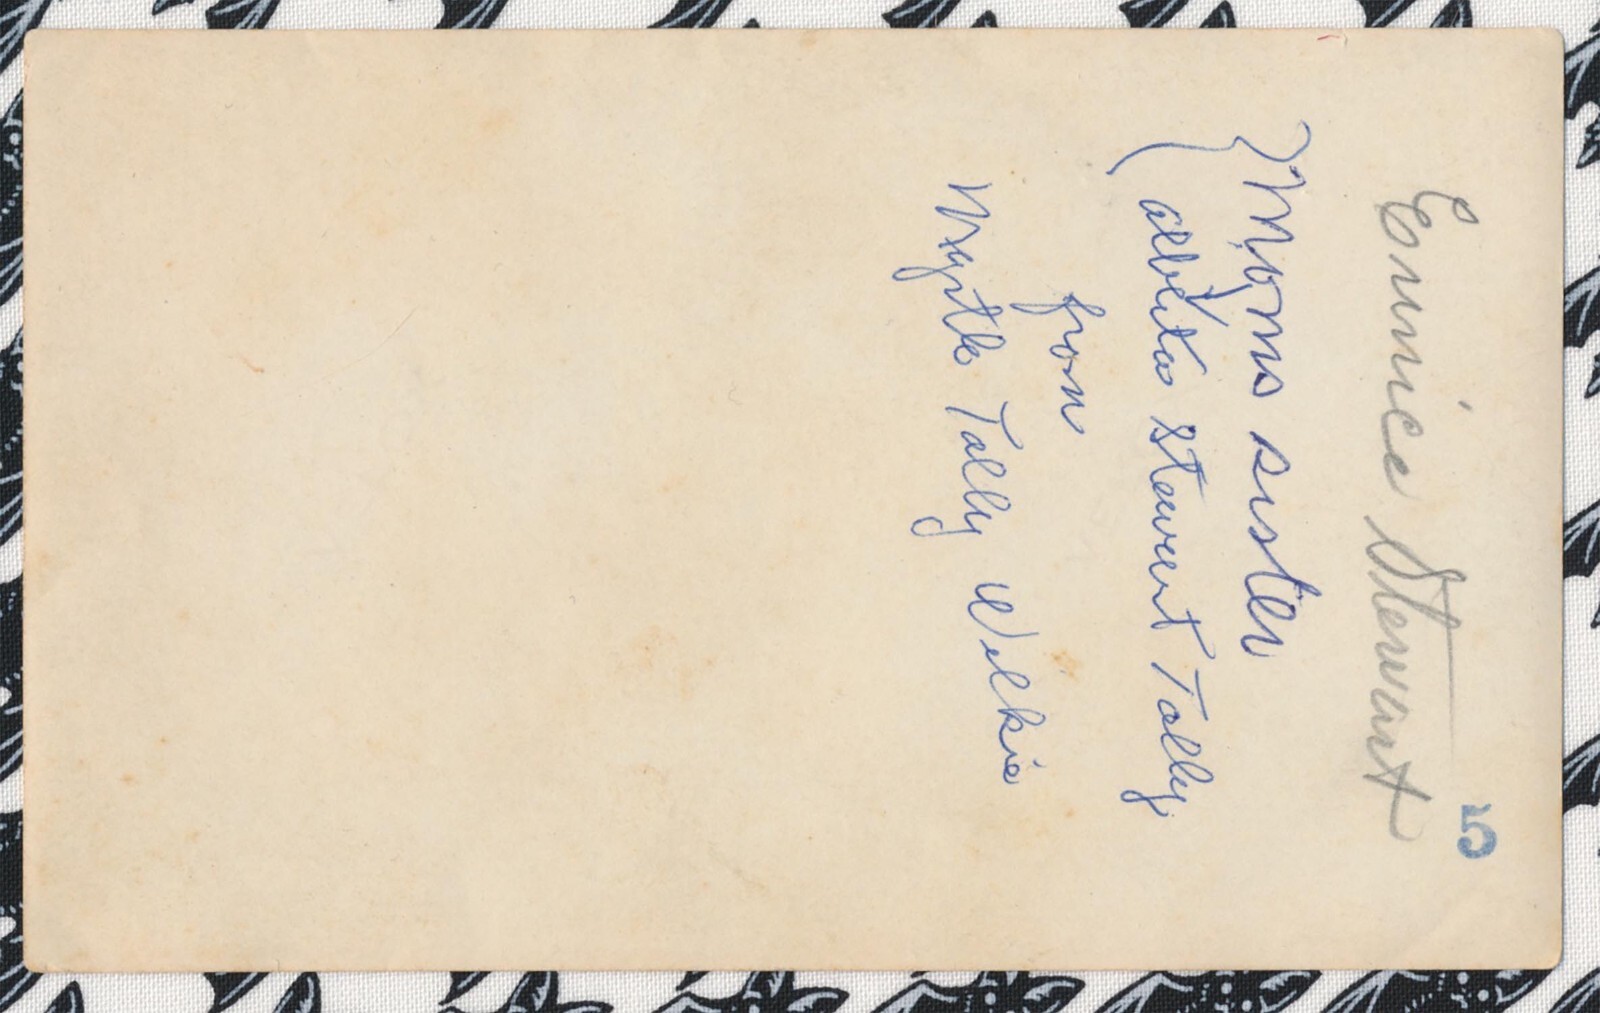 5
Eunice Stewart
Moms sister
(Alberta Stewart Tally
from
Myrtle Tally Wilkie